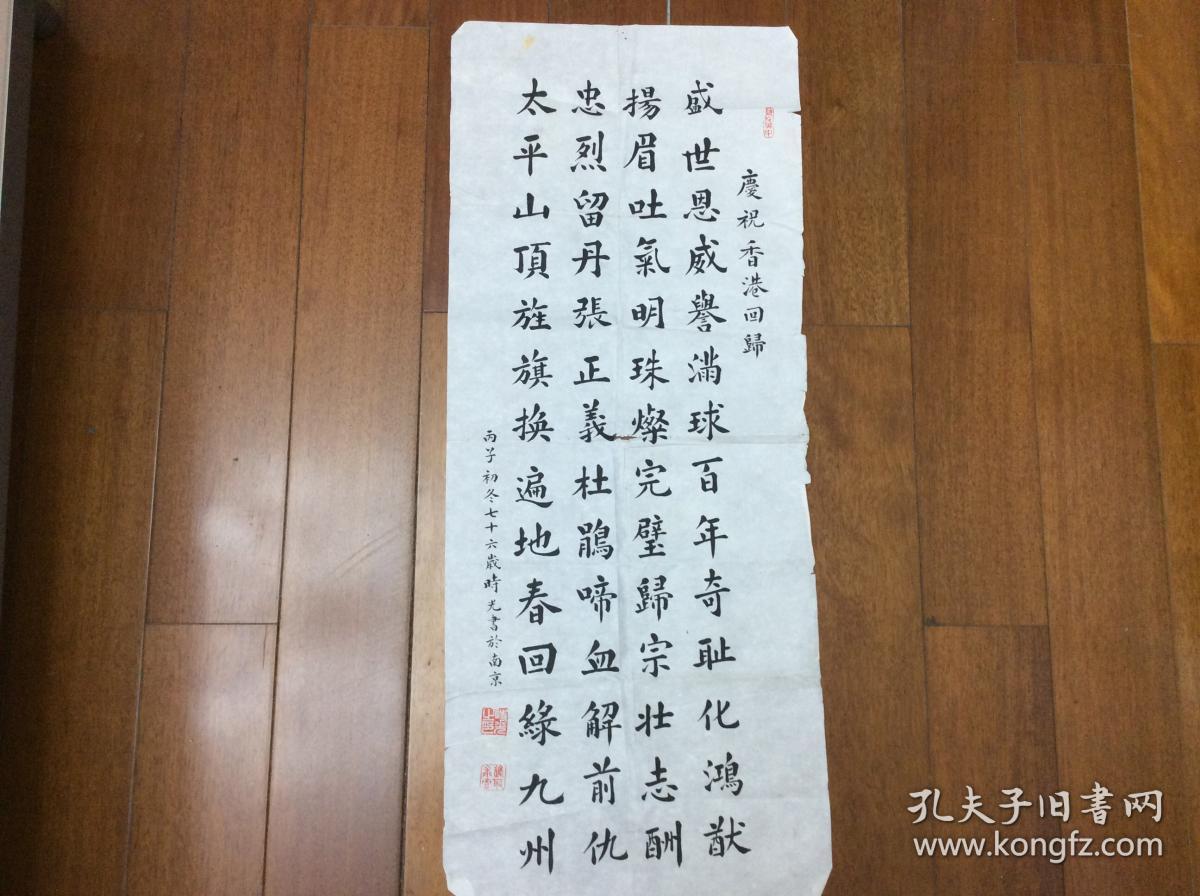 慶祝香港回歸
盛世恩威譽滿球百年奇耻化鴻猷
揚眉吐氣明珠燦完璧歸宗壯志酬
忠烈留丹張正義杜鵑啼血解前仇
太平山頂旌旗換遍地春回綠九州
丙子初冬七十六歲時光書於南京
孔夫子旧書网
www.kongfz.com